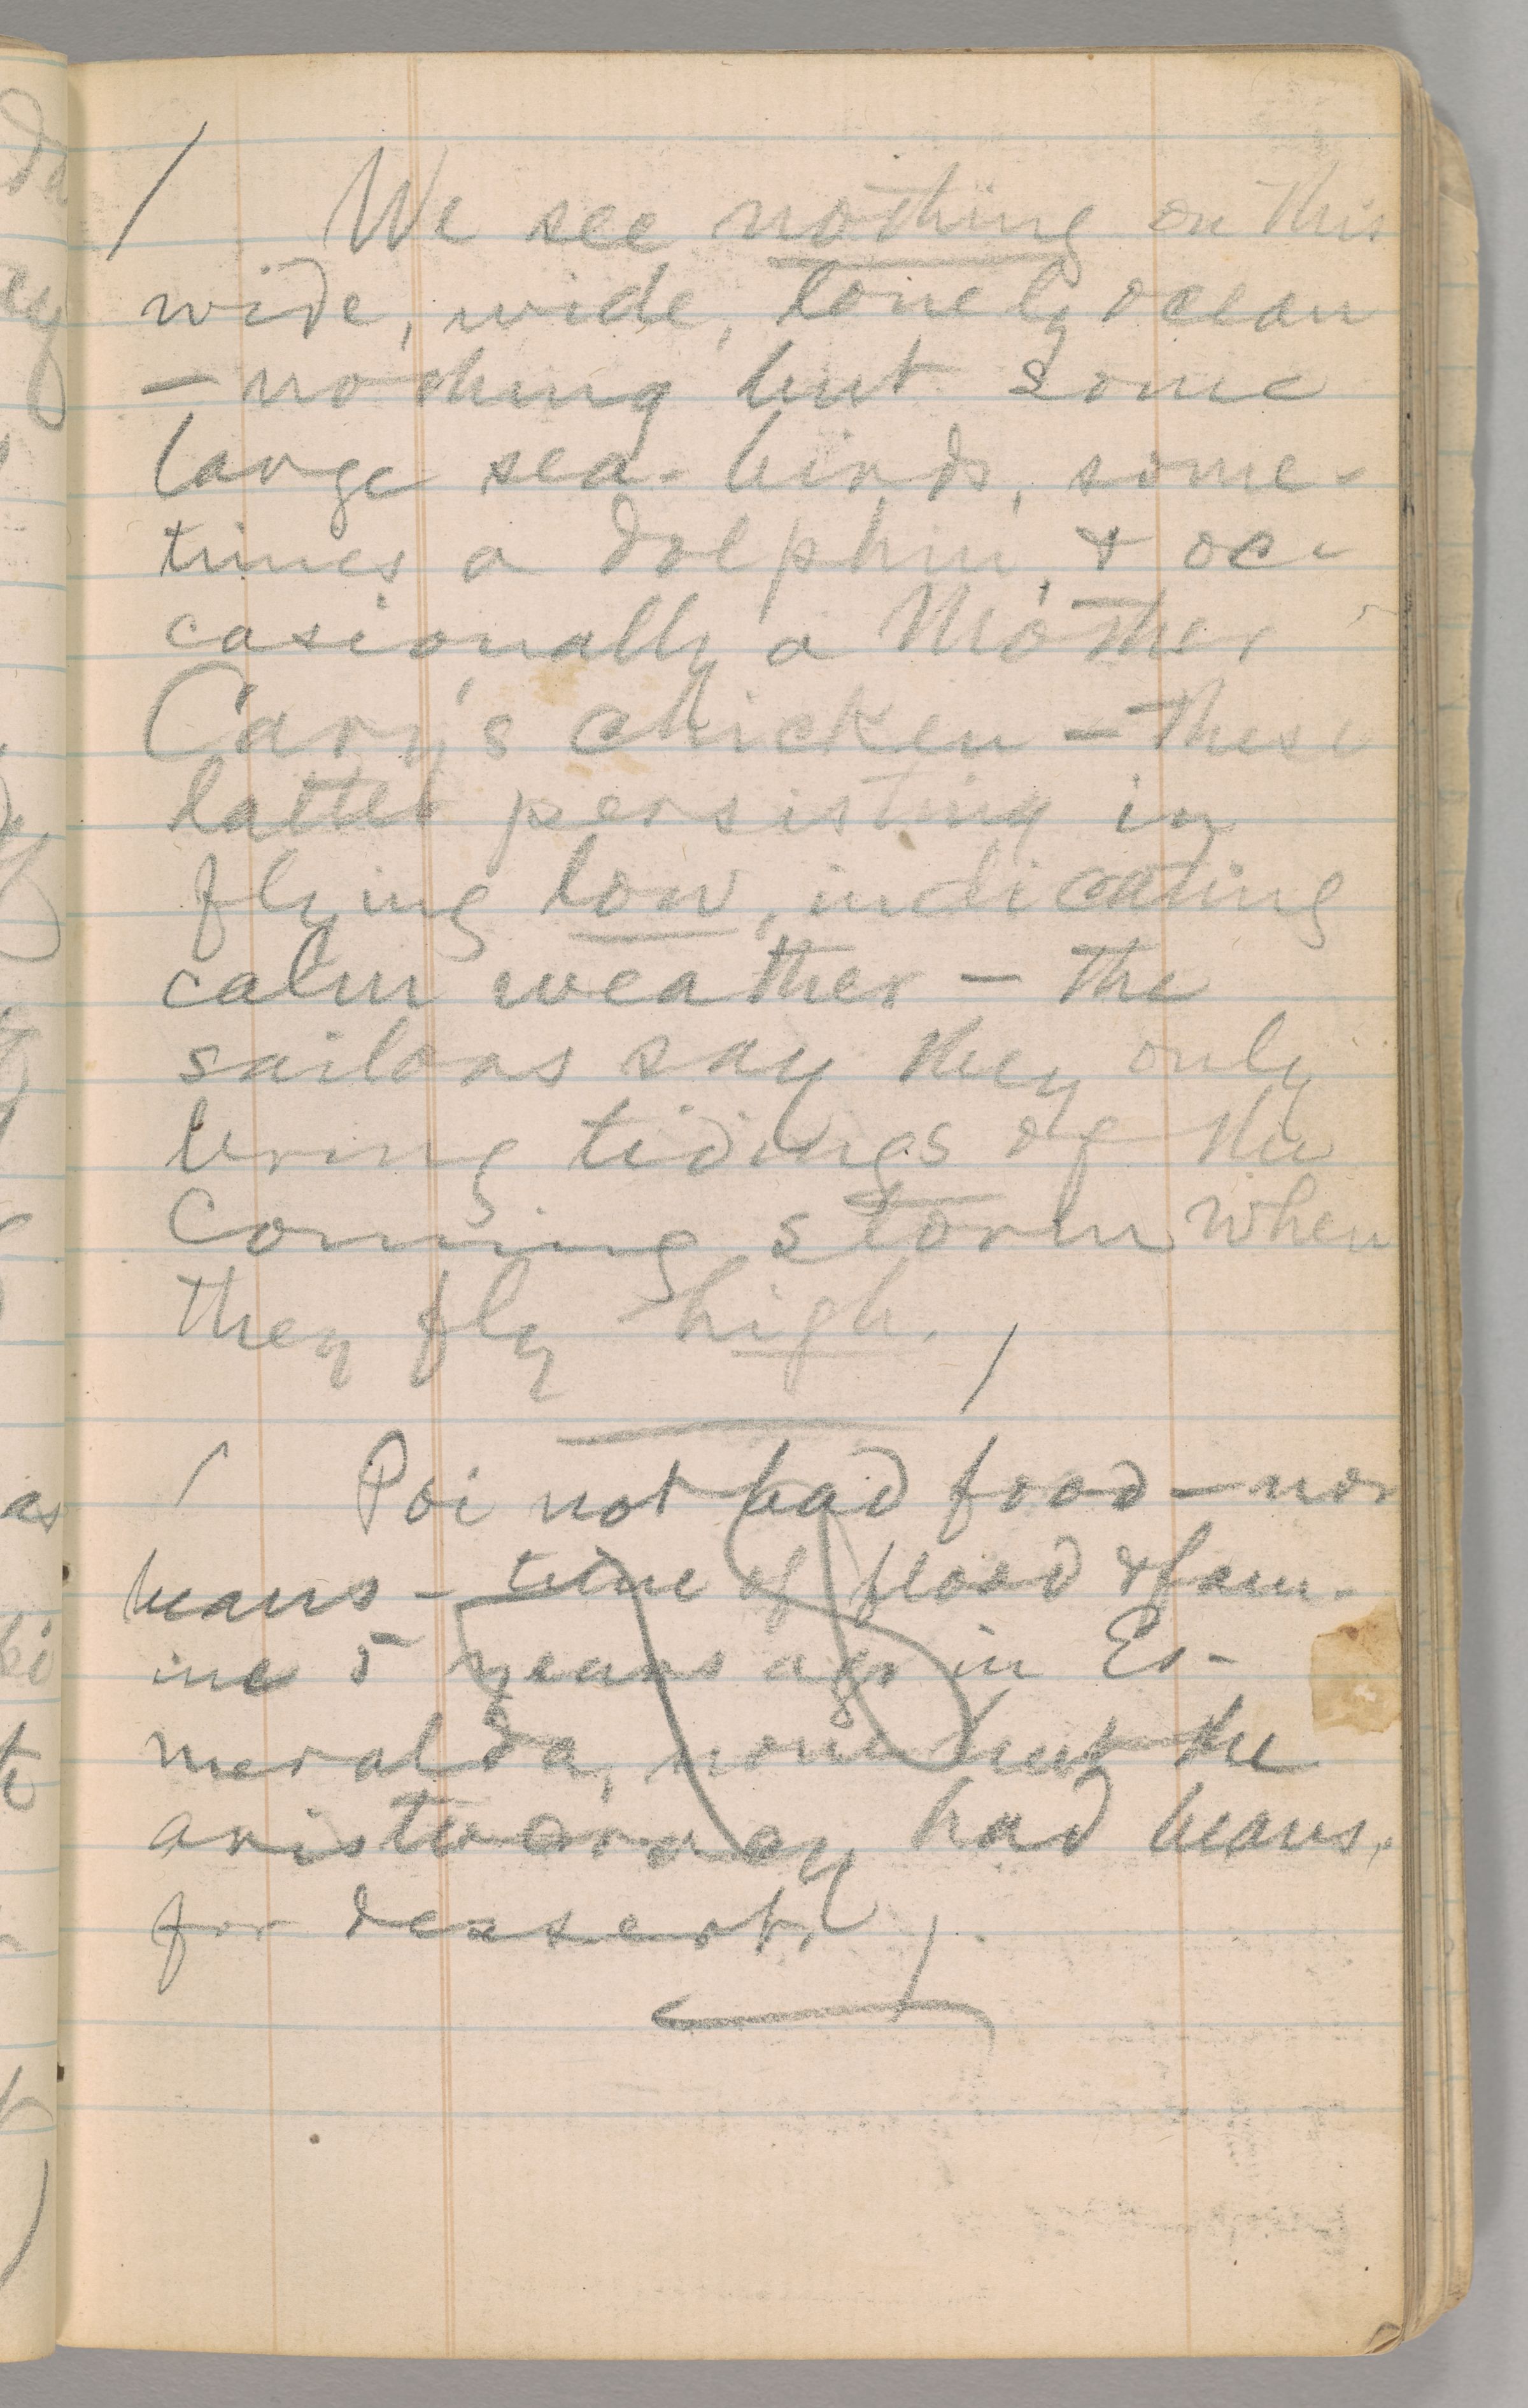 We see nothing on this
wide, wide, lonely ocean
— nothing but some
large sea-birds, some-
times a dolphin, & oc-
casionally a Mother
Cary's chicken — these
latter persisting in
flying low, indicating
calm weather — the
sailors say they only
bring tidings of the
coming storm when
they fly high.
Poi not bad food — nor
beans — time of flood & fam-
ine 5 years ago in Es-
meralda, none but the
aristocracy had beans
for dessert.